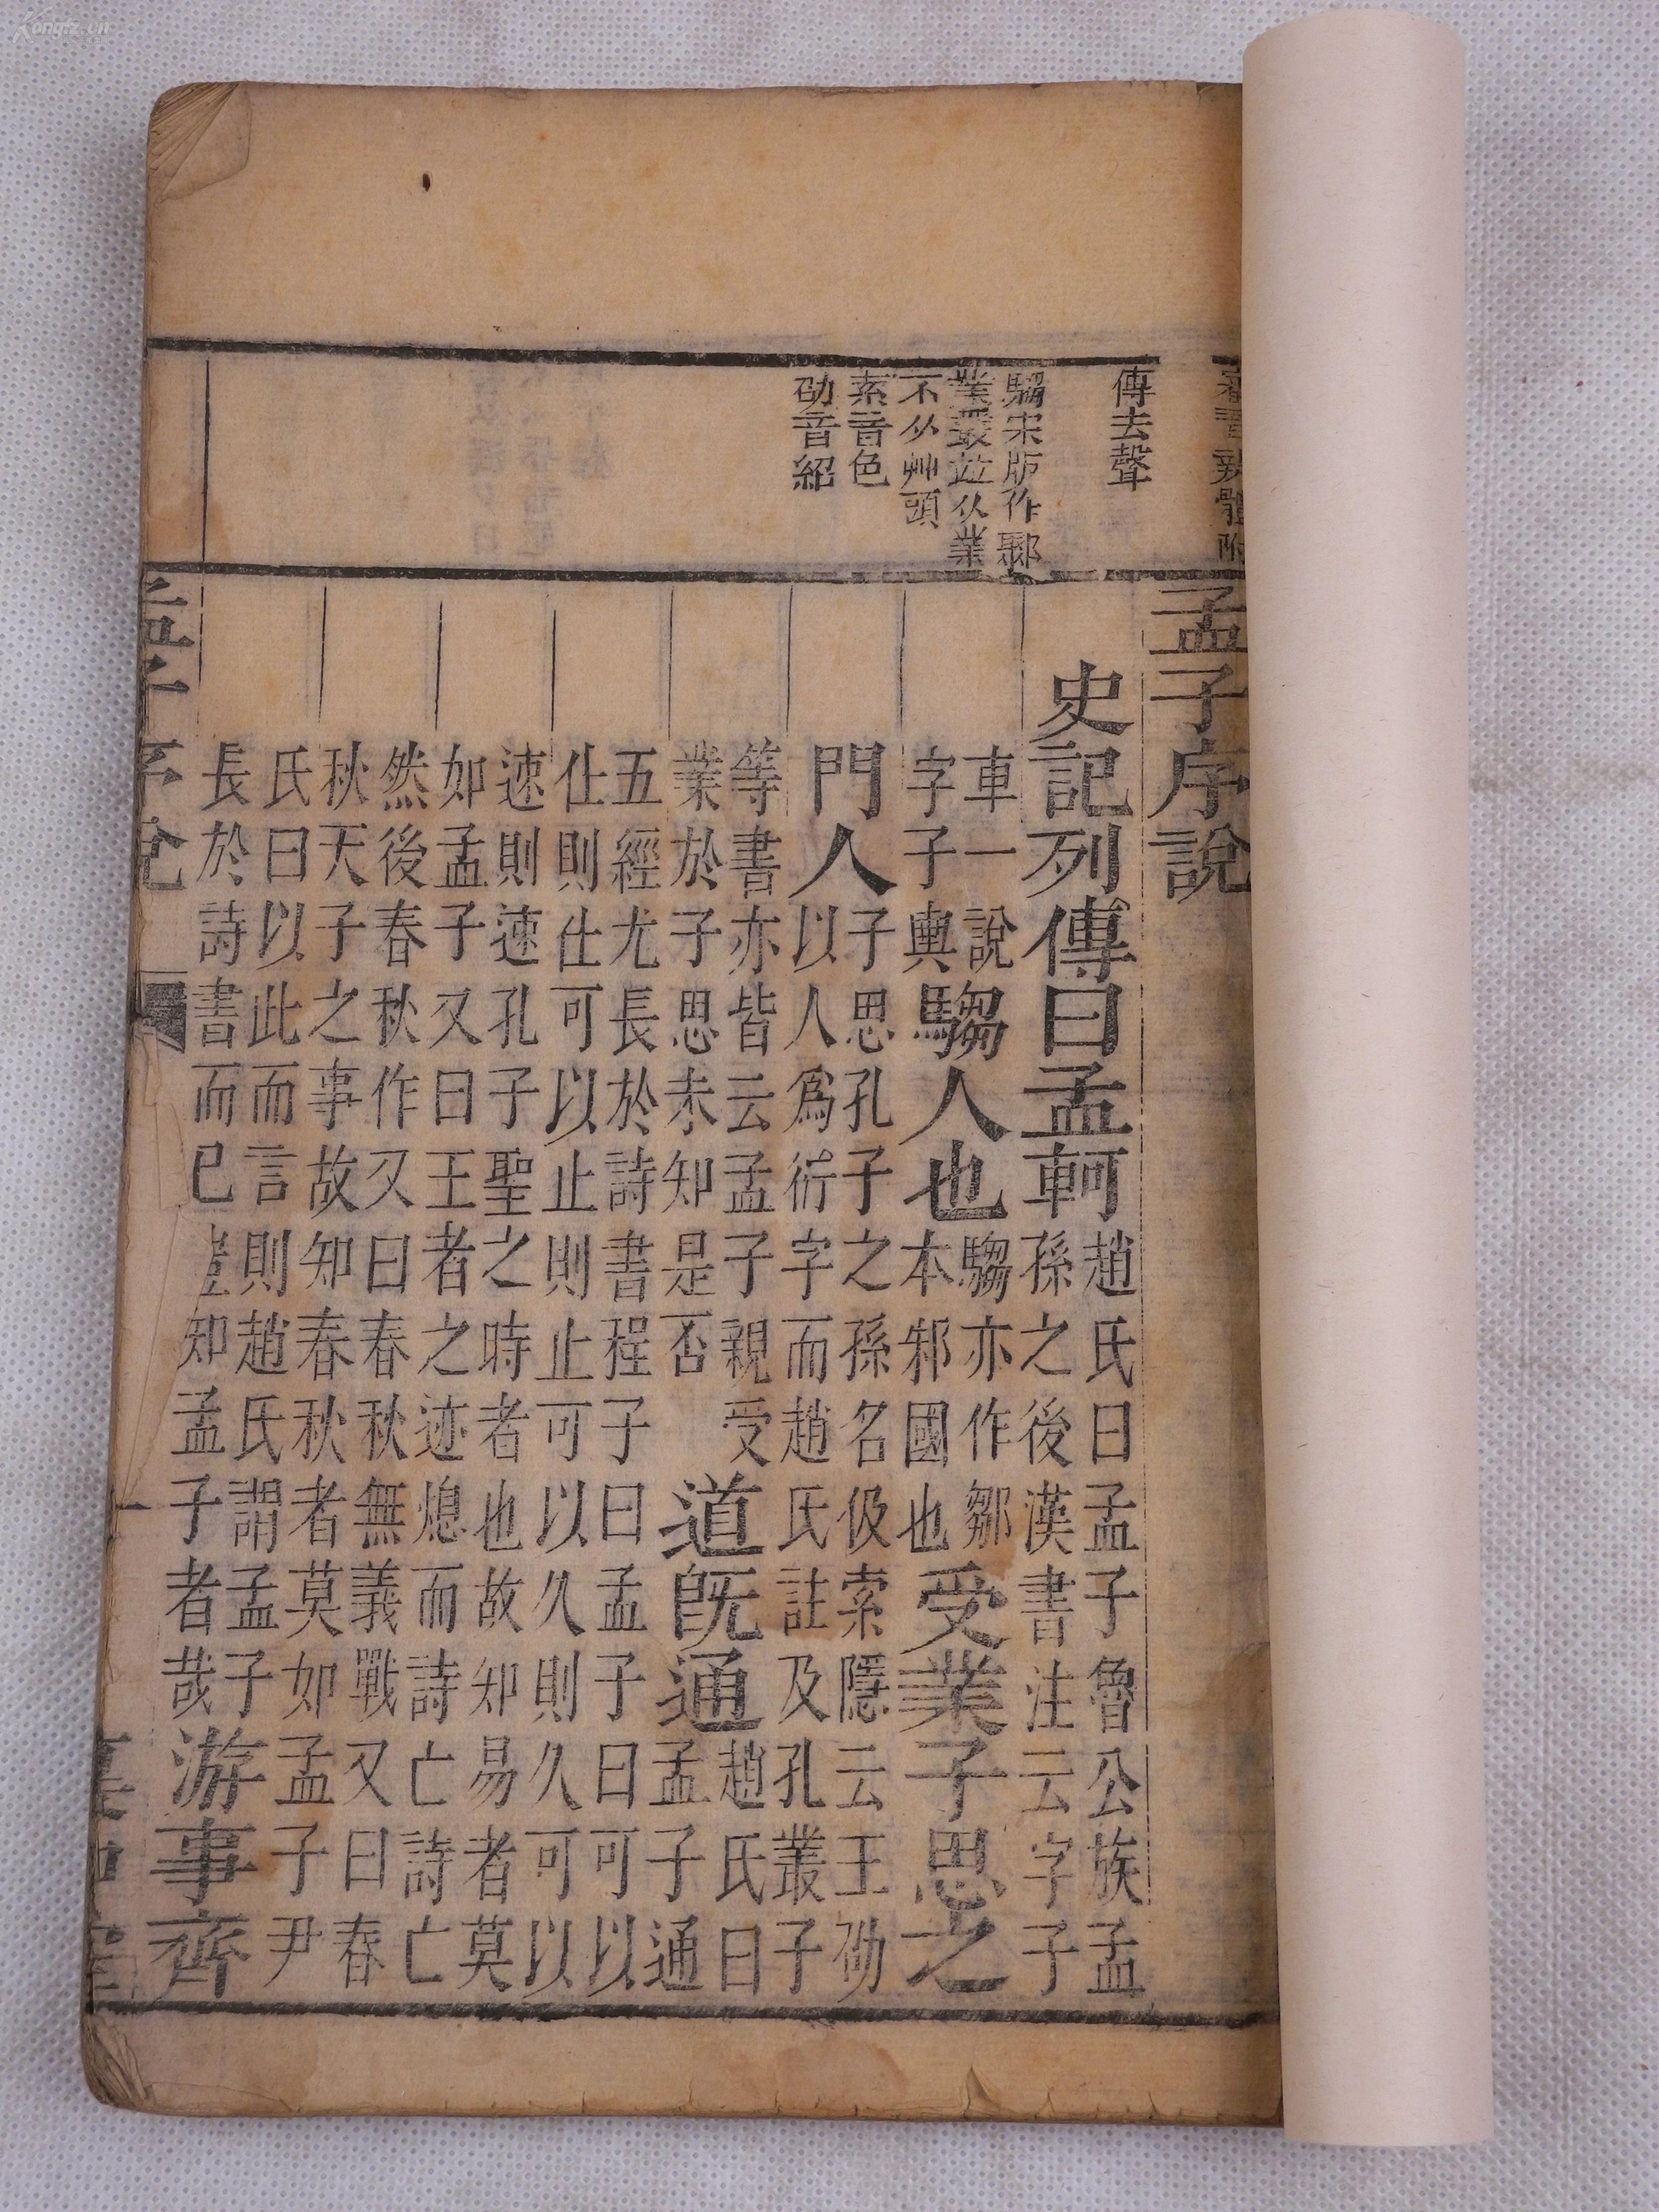 傳去聲
騶宋版作鄹
業叢並从業
不从艸頭
索音色
劭音紹
孟子序說
史記列傳曰孟軻趙氏曰孟子魯公族孟
孫之後漢書注云字子
車一說
字子輿騶人也騶亦作鄒
本邾國也受業子思之
門人子思孔子之孫名伋索隱云王劭
以人爲衍字而趙氏註及孔叢子
等書亦皆云孟子親受
業於子思未知是否道旣通趙氏曰
孟子通
五經尤長於詩書程子曰孟子曰可以
仕則仕可以止則止可以久則久可以
速則速孔子聖之時者也故知易者莫
如孟子又曰王者之迹熄而詩亡詩亡
然後春秋作又曰春秋無義戰又曰春
秋天子之事故知春秋者莫如孟子尹
氏曰以此而言則趙氏謂孟子
長於詩書而已豈知孟子者哉游事齊
孟子序說
一
Kongfz.cn